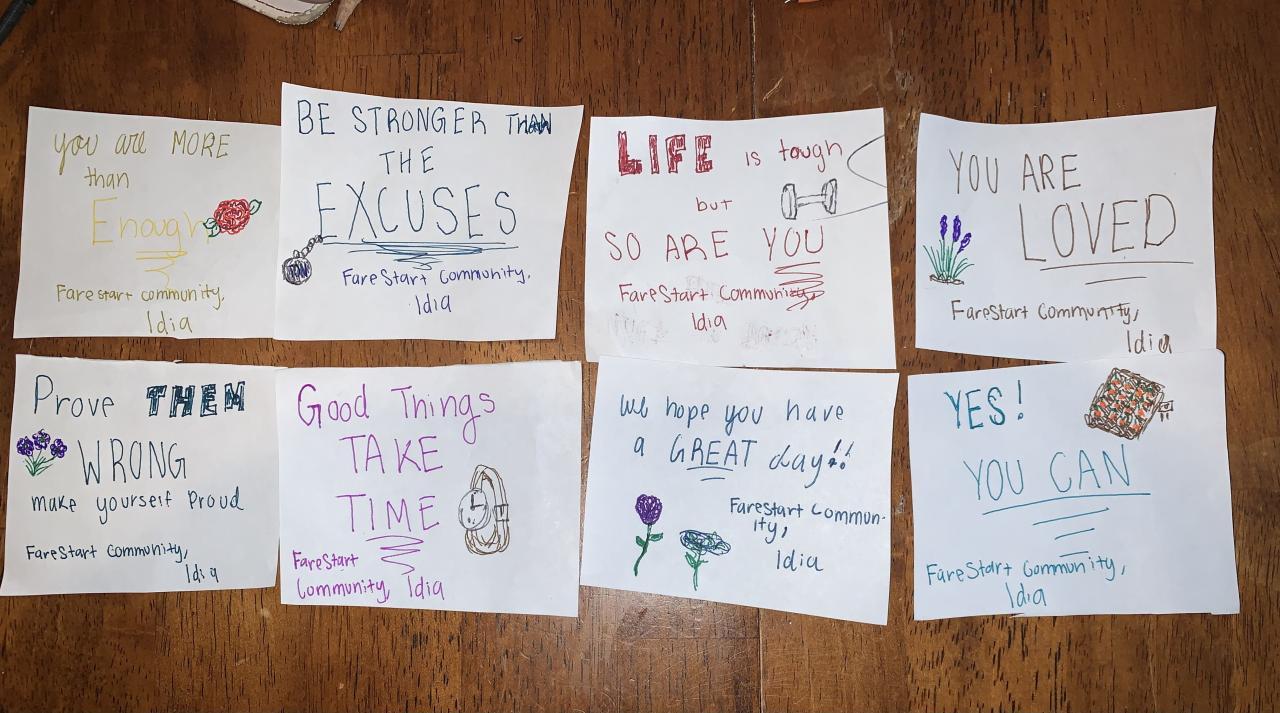 you are MORE
than
Enough
FareStart community,
Idia
BE STRONGER THAN
THE
EXCUSES
FareStart Community,
Idia
LIFE is tough
but
SO ARE YOU
FareStart Community,
Idia
YOU ARE
LOVED
FareStart Community,
Idia
Prove THEM
WRONG
make yourself Proud
FareStart Community,
Idia
Good Things
TAKE
TIME
FareStart
Community, Idia
We hope you have
a GREAT day!!
FareStart Commun-
ity,
Idia
YES!
YOU CAN
FareStart Community,
Idia